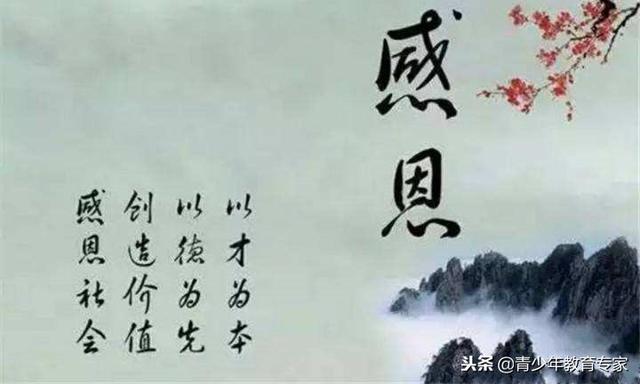 感恩
以才为本
以德为先
创造价值
感恩社会
头条@青少年教育专家